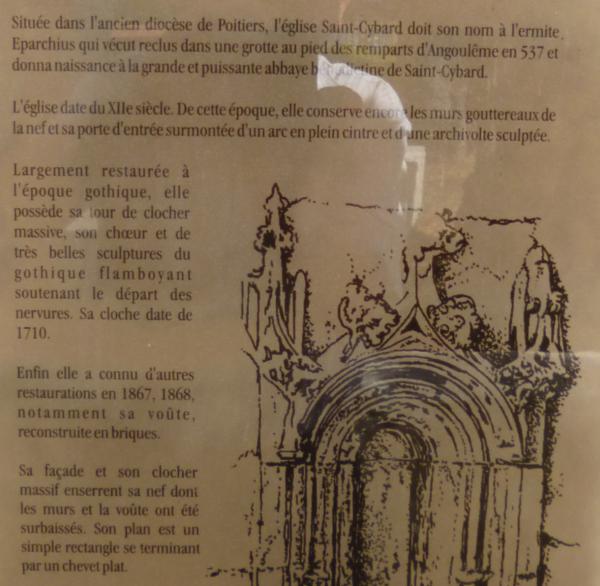 Située dans l'ancien diocèse de Poitiers, l'église Saint-Cybard doit son nom à l'ermite
Eparchius qui vécut reclus dans une grotte au pied des remparts d'Angoulême en 537 et
donna naissance à la grande et puissante abbaye bénédictine de Saint-Cybard.
L'église date du XIIe siècle. De cette époque, elle conserve encore les murs gouttereaux de
la nef et sa porte d'entrée surmontée d'un arc en plein cintre et d'une archivolte sculptée.
Largement restaurée à
l'époque gothique, elle
possède sa tour de clocher
massive, son chœur et de
très belles sculptures du
gothique flamboyant
soutenant le départ des
nervures. Sa cloche date de
1710.
Enfin elle a connu d'autres
restaurations en 1867, 1868,
notamment sa voûte,
reconstruite en briques.
Sa façade et son clocher
massif enserrent sa nef dont
les murs et la voûte ont été
surbaissés. Son plan est un
simple rectangle se terminant
par un chevet plat.